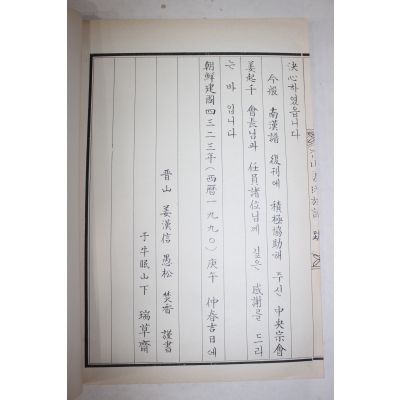 決心하였읍니다
今般 南漢譜 復刊에 積極協助해 주신 中央宗會
姜起千 會長님과 任員諸位님께 깊은 感謝를 드리
는 바입니다
朝鮮建國四三二三年(西曆一九九０)庚午 仲春吉日에
晋山 姜漢信 愚松 焚香 謹書
于牛眠山下 瑞草齋